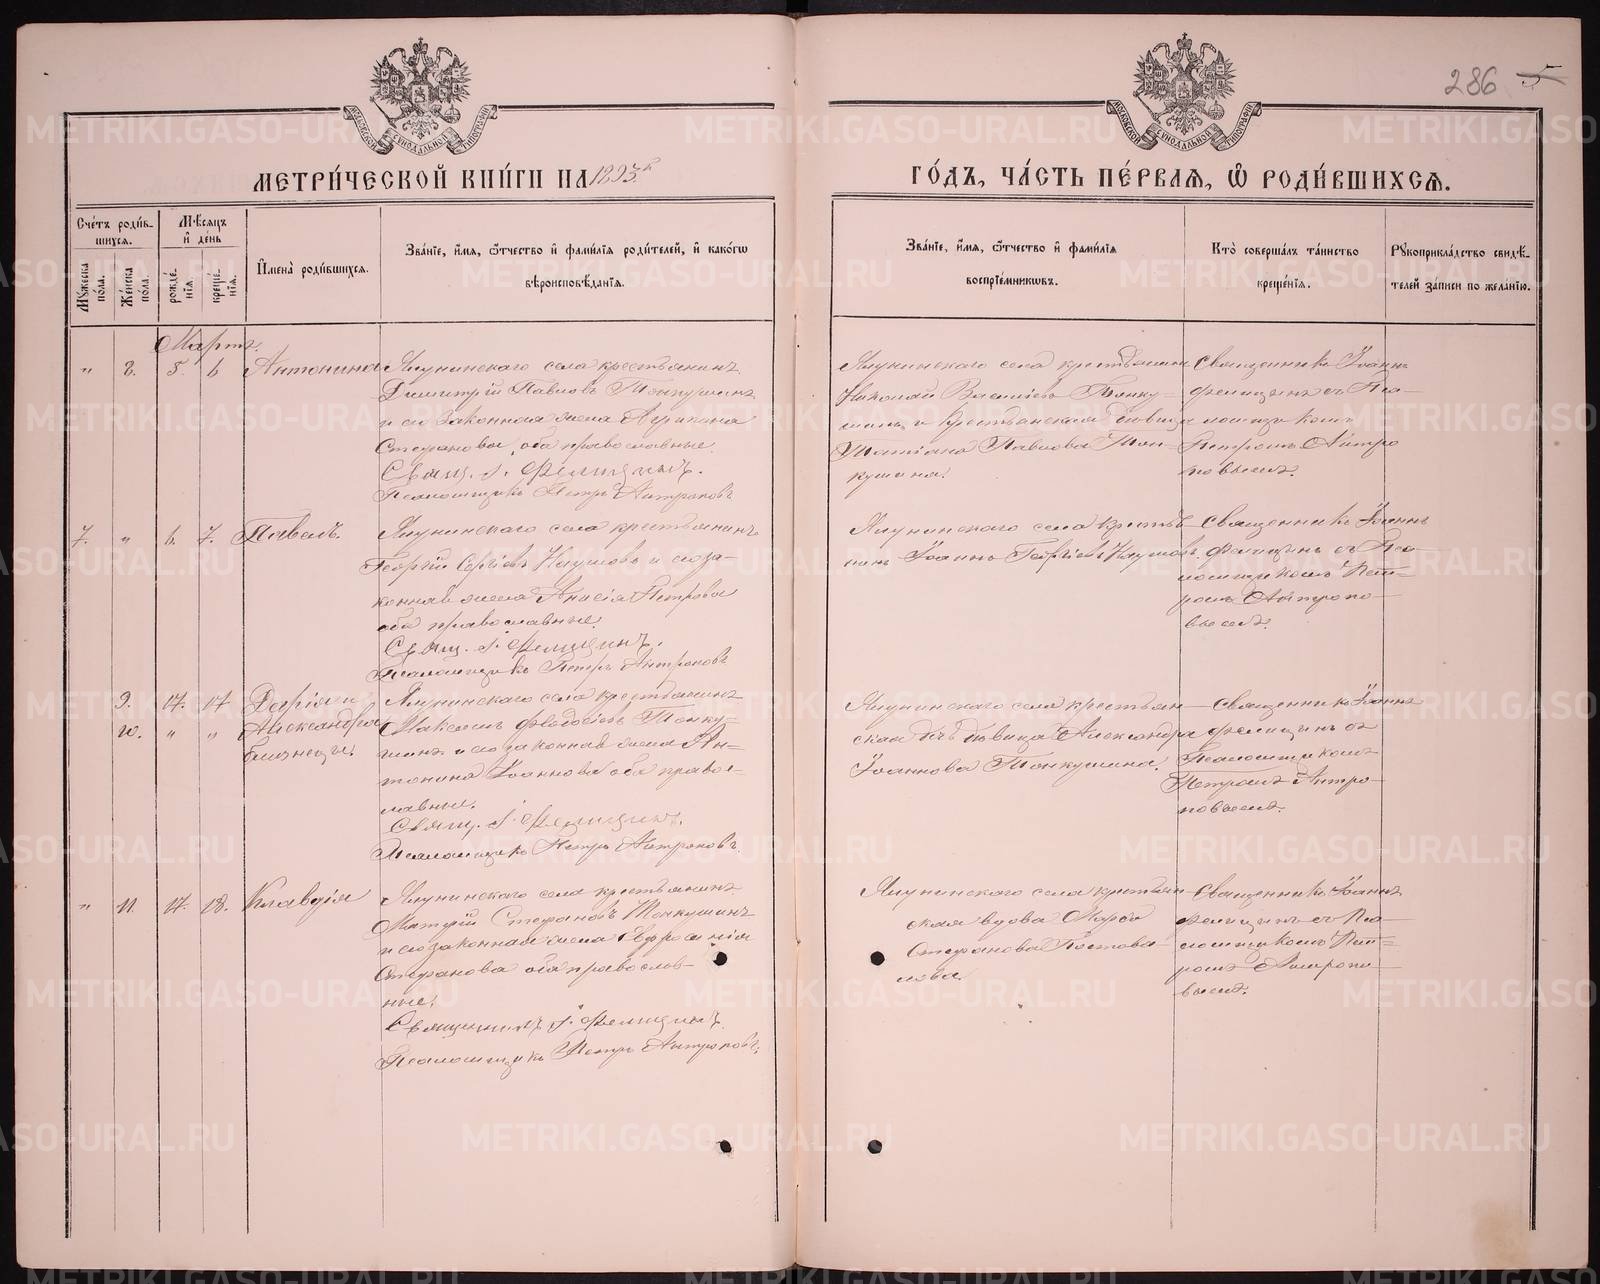 286 5
МОСКОВСКОЙ СѴНОДАЛЬНОЙ ТИПОГРАФІИ
МОСКОВСКОЙ СѴНОДАЛЬНОЙ ТИПОГРАФІИ
МЕТРИ́ЧЕСКОЙ КНИ́ГИ НА 1893й
ГО́ДЪ, ЧА́СТЬ ПЕ́РВАЯ, Ѽ РОДИ́ВШИХСЯ.
Сче́тъ роди́в-
шихся.
Му́жеска по́ла.
Же́нска по́ла.
Мѣ́сяцъ
и҆ де́нь
рожде́нія.
креще́нія.
И҆мена̀ роди́вшихся.
Зва́ніе, и҆́мя, ѻ҆́тчество и҆ фами́лія роди́телей, и҆ како́гѡ
вѣроисповѣ́данія.
Зва́ніе, и҆́мя, ѻ҆́тчество и҆ фами́лія
воспріе́мникѡвъ.
Кто̀ соверша́лъ та́инство
креще́нія.
Рꙋкоприкла́дство свидѣ́-
телей за́писи по жела́нію.
Мартъ.
„ 8. 5. 6 Антонина
Ялунинскаго села крестьянинъ
Димитрій Павловъ Тонкушинъ
и его законная жена Агрипина
Стефанова, оба православные.
Свящ. І. Фелицинъ.
Псаломщикъ Петръ Антроповъ
Ялунинскаго села крестьянинъ
Николай Васильевъ Тонку-
шинъ и крестьянская девица
Татіана Павлова Тон-
кушина.
Священникъ Іоаннъ
Фелицинъ съ Пса-
ломщикомъ
Петромъ Антро
повымъ.
7. „ 6. 7. Павелъ.
Ялунинскаго села крестьянинъ
Георгій Сергіевъ Наумовъ и его за-
конная жена Анисія Петрова
оба православные.
Свящ. І. Фелицинъ.
Псаломщикъ Петръ Антроповъ
Ялунинскаго села крестья-
нинъ Іоаннъ Георгіевъ Наумовъ.
Священникъ Іоаннъ
Фелицинъ съ Пса-
ломщикомъ Пет-
ромъ Антропо-
вымъ.
9. 17. 17 Дарія и
10. „ „ Александра
близнецы.
Ялунинскаго села крестьянинъ
Максимъ Феодосіевъ Тонку-
шинъ и его законная жена Ан-
тонина Іоаннова оба право-
славные.
Свящ. І. Фелицинъ.
Псаломщикъ Петръ Антроповъ.
Ялунинскаго села крестьян-
ская дѣвица Александра
Іоаннова Тонкушина.
Священникъ Іоаннъ
Фелицинъ съ
Псаломщикомъ
Петромъ Антро-
повымъ.
„ 11. 17. 18. Клавдія
Ялунинскаго села крестьянинъ
Матвій Стефановъ Тонкушинъ
и его законная жена Евфросинія
Стефанова оба православ-
ные.
Священникъ І. Фелицинъ.
Псаломщикъ Петръ Антроповъ.
Ялунинскаго села крестьян-
ская вдова
Стефанова
Священникъ Іоаннъ
Фелицинъ съ Пса-
ломщикомъ Пет-
ромъ Антропо-
вымъ.
METRIKI.GASO-URAL.RU